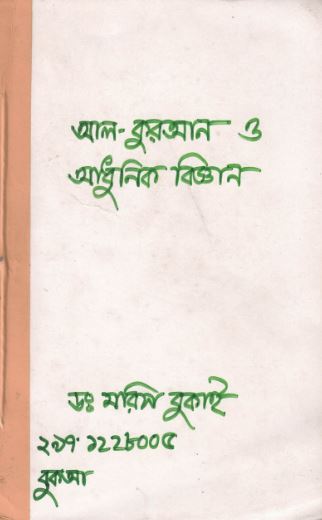 আল-কুরআন ও
আধুনিক বিজ্ঞান
ডঃ মরিস বুকাই
২৯৭.১২২৮০০৫
বুকআ